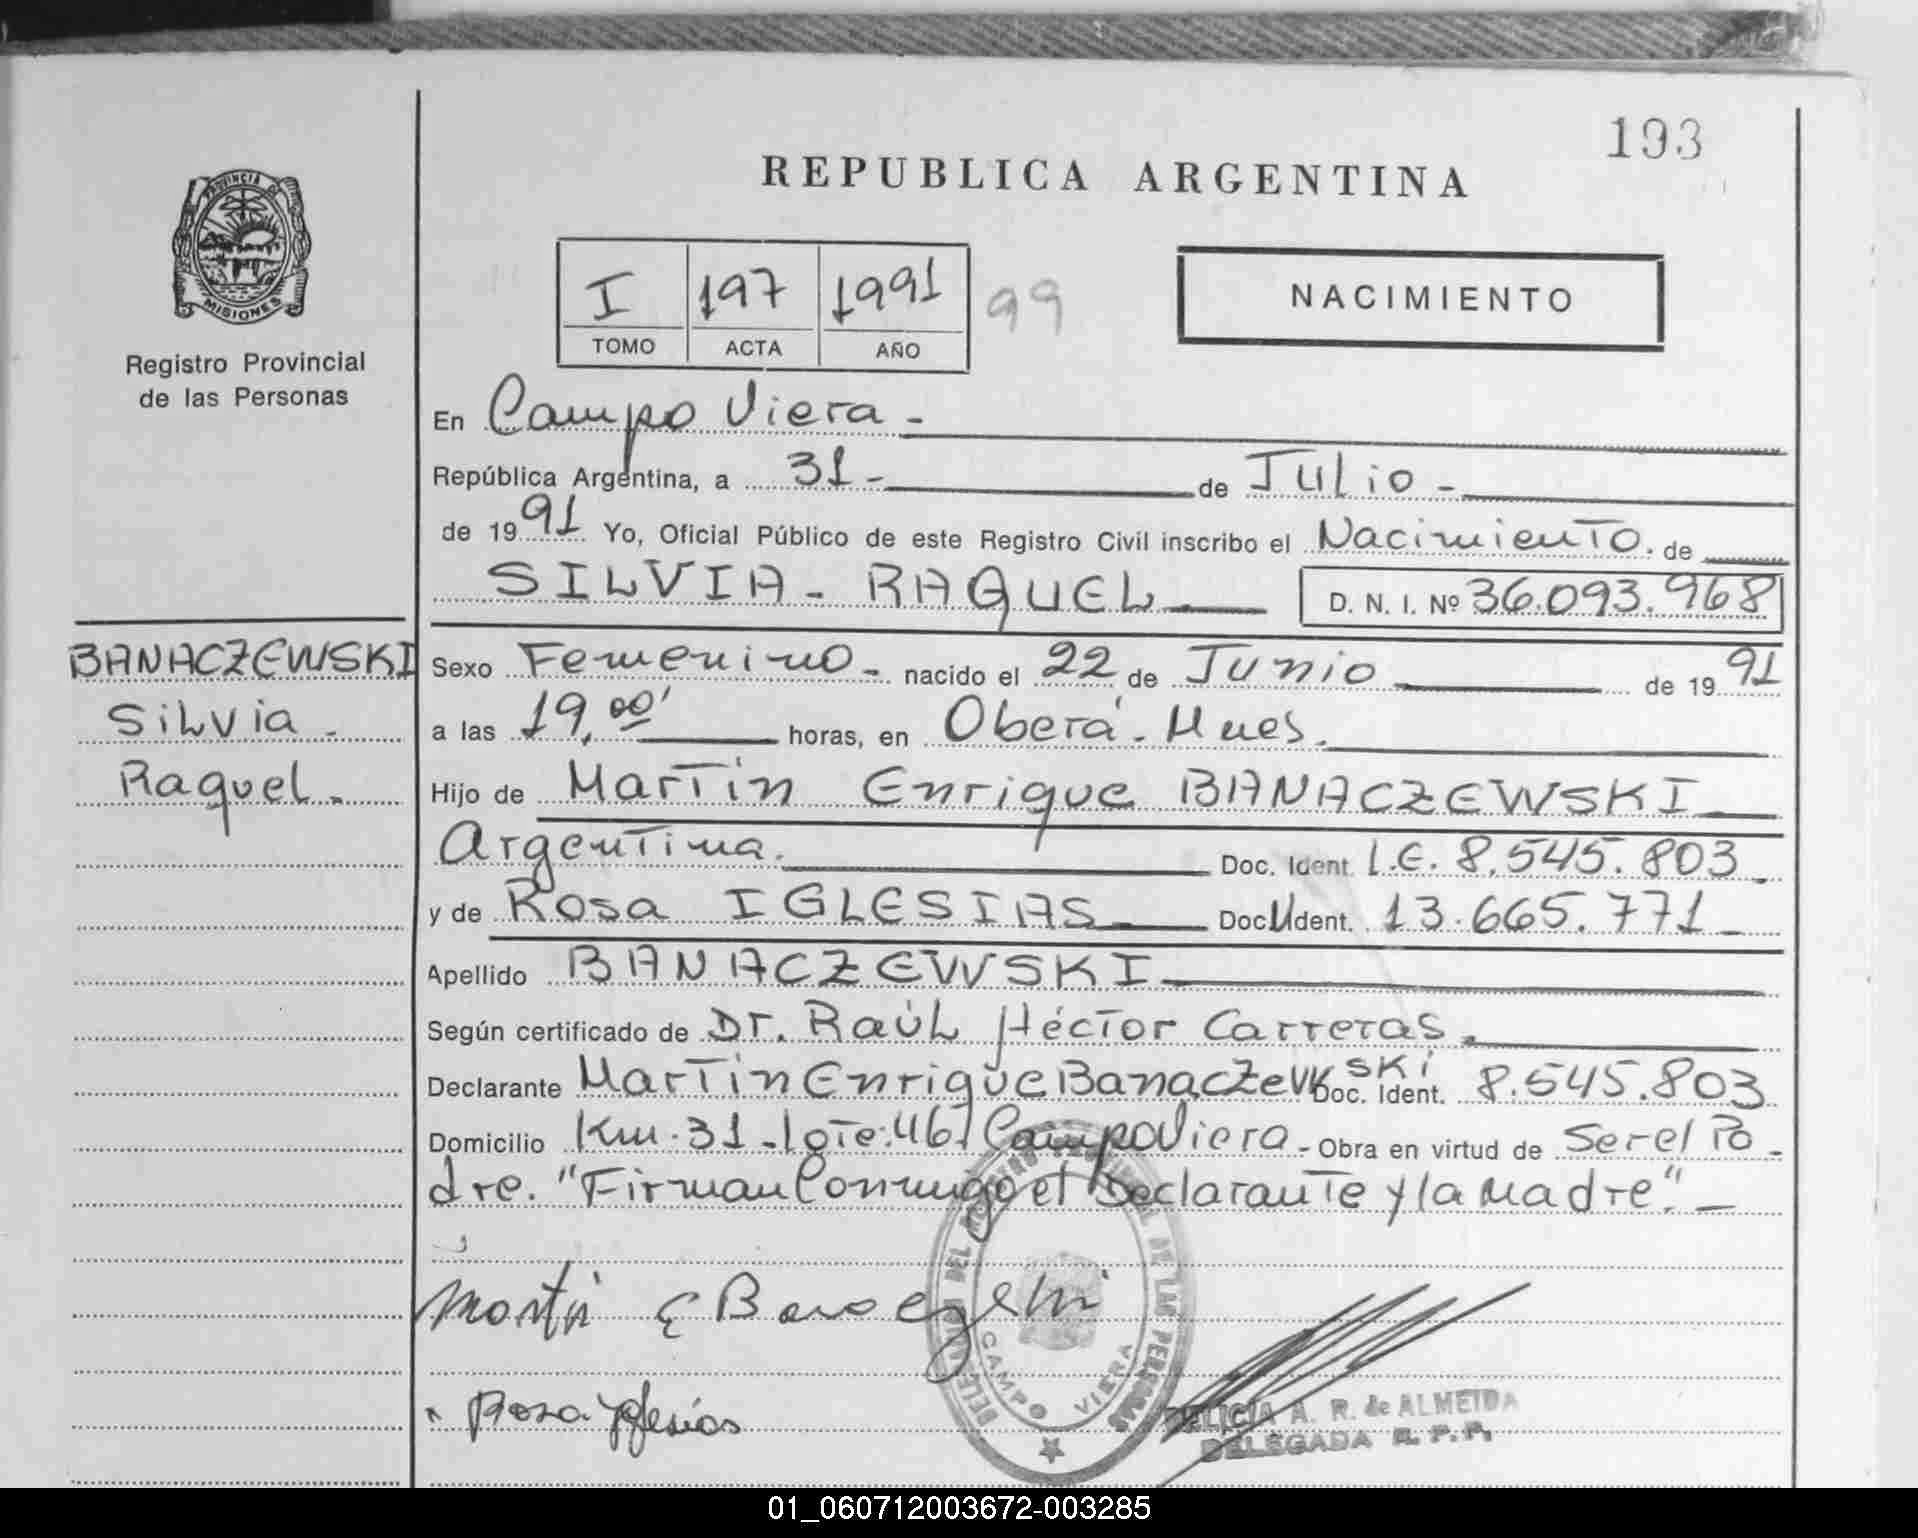 193
REPUBLICA ARGENTINA
PROVINCIA DE
MISIONES
Registro Provincial
de las Personas
I 197 1991 99
TOMO ACTA AÑO
NACIMIENTO
En Campo Viera -
República Argentina, a 31 - de Julio -
de 19 91 Yo, Oficial Público de este Registro Civil inscribo el Nacimiento. de
SILVIA - RAQUEL D. N. I. Nº 36.093.968
BANACZEWSKI
Silvia -
Raquel -
Sexo Femenino - nacido el 22 de Junio de 19 91
a las 19,00' horas, en Oberá - Mnes.
Hijo de Martin Enrique BANACZEWSKI
Argentina. Doc. Ident. L.E. 8.545.803 -
y de Rosa IGLESIAS Doc. Ident. 13.665.771 -
Apellido BANACZEWSKI
Según certificado de Dr. Raúl Héctor Carreras.
Declarante Martin Enrique Banaczewski Doc. Ident. 8.545.803
Domicilio Km. 31 - lote: 46 Campo Viera - Obra en virtud de Ser el Pa-
dre. "Firman Conmigo el Declarante y la Madre". -
Rosa Iglesias
DELEGACION DEL REGISTRO PROVINCIAL DE LAS PERSONAS
CAMPO VIERA
A. R. de ALMEIDA
DELEGADA R. P. P.
01_060712003672-003285